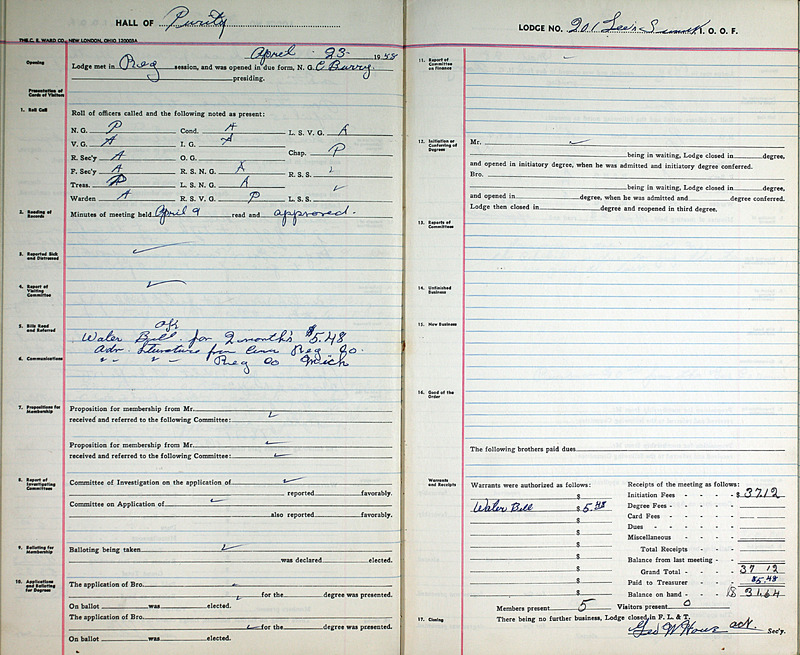 HALL OF Purity
THE C. E. WARD CO., NEW LONDON, OHIO 120003A
April 23 1958
Opening
Lodge met in Reg session, and was opened in due form, N. G. C Burry
presiding.
Presentation of Cards of Visitors
1. Roll Call
Roll of officers called and the following noted as present:
N. G. P Cond. A L. S. V. G. A
V. G. A I. G. A
Chap. P
R. Sec'y A O. G.
F. Sec'y A R. S. N. G. A R. S. S. ✓
Treas. P L. S. N. G. A
Warden A R. S. V. G. P L. S. S. ✓
2. Reading of Records
Minutes of meeting held April 9 read and approved.
3. Reported Sick and Distressed
4. Report of Visiting Committee
5. Bills Read and Referred
Water Bill for 2 months $5.48
6. Communications
Adv. literature from Reg Co.
" " Reg Co Mich
7. Propositions for Membership
Proposition for membership from Mr.
received and referred to the following Committee: ✓
Proposition for membership from Mr. ✓
received and referred to the following Committee: ✓
8. Report of Investigating Committees
Committee of Investigation on the application of ✓
reported favorably.
Committee on Application of ✓
also reported favorably.
9. Balloting for Membership
Balloting being taken ✓
was declared elected.
10. Applications and Balloting for Degrees
The application of Bro.
for the degree was presented.
On ballot was elected.
The application of Bro.
for the degree was presented.
On ballot was elected.
LODGE NO. 201 Lee's Summit I. O. O. F.
11. Report of Committee on Finance
12. Initiation or Conferring of Degrees
Mr. ✓
being in waiting, Lodge closed in degree,
and opened in initiatory degree, when he was admitted and initiatory degree conferred.
Bro.
being in waiting, Lodge closed in degree,
and opened in degree, when he was admitted and degree conferred.
Lodge then closed in degree and reopened in third degree.
13. Reports of Committees
14. Unfinished Business
15. New Business
16. Good of the Order
The following brothers paid dues
Warrants and Receipts
Warrants were authorized as follows:
$
Water Bill $ 5.48
$
$
$
$
$
$
$
Receipts of the meeting as follows:
Initiation Fees - - - - $ 37.12
Degree Fees - - - -
Card Fees - - - -
Dues - - - -
Miscellaneous - - - -
Total Receipts
Balance from last meeting -
Grand Total - - 37 12
Paid to Treasurer - - $5.48
Balance on hand - - 31.64
Members present 5 Visitors present 0
17. Closing
There being no further business, Lodge closed in F. L. & T.
Geo W Hour Sec'y.